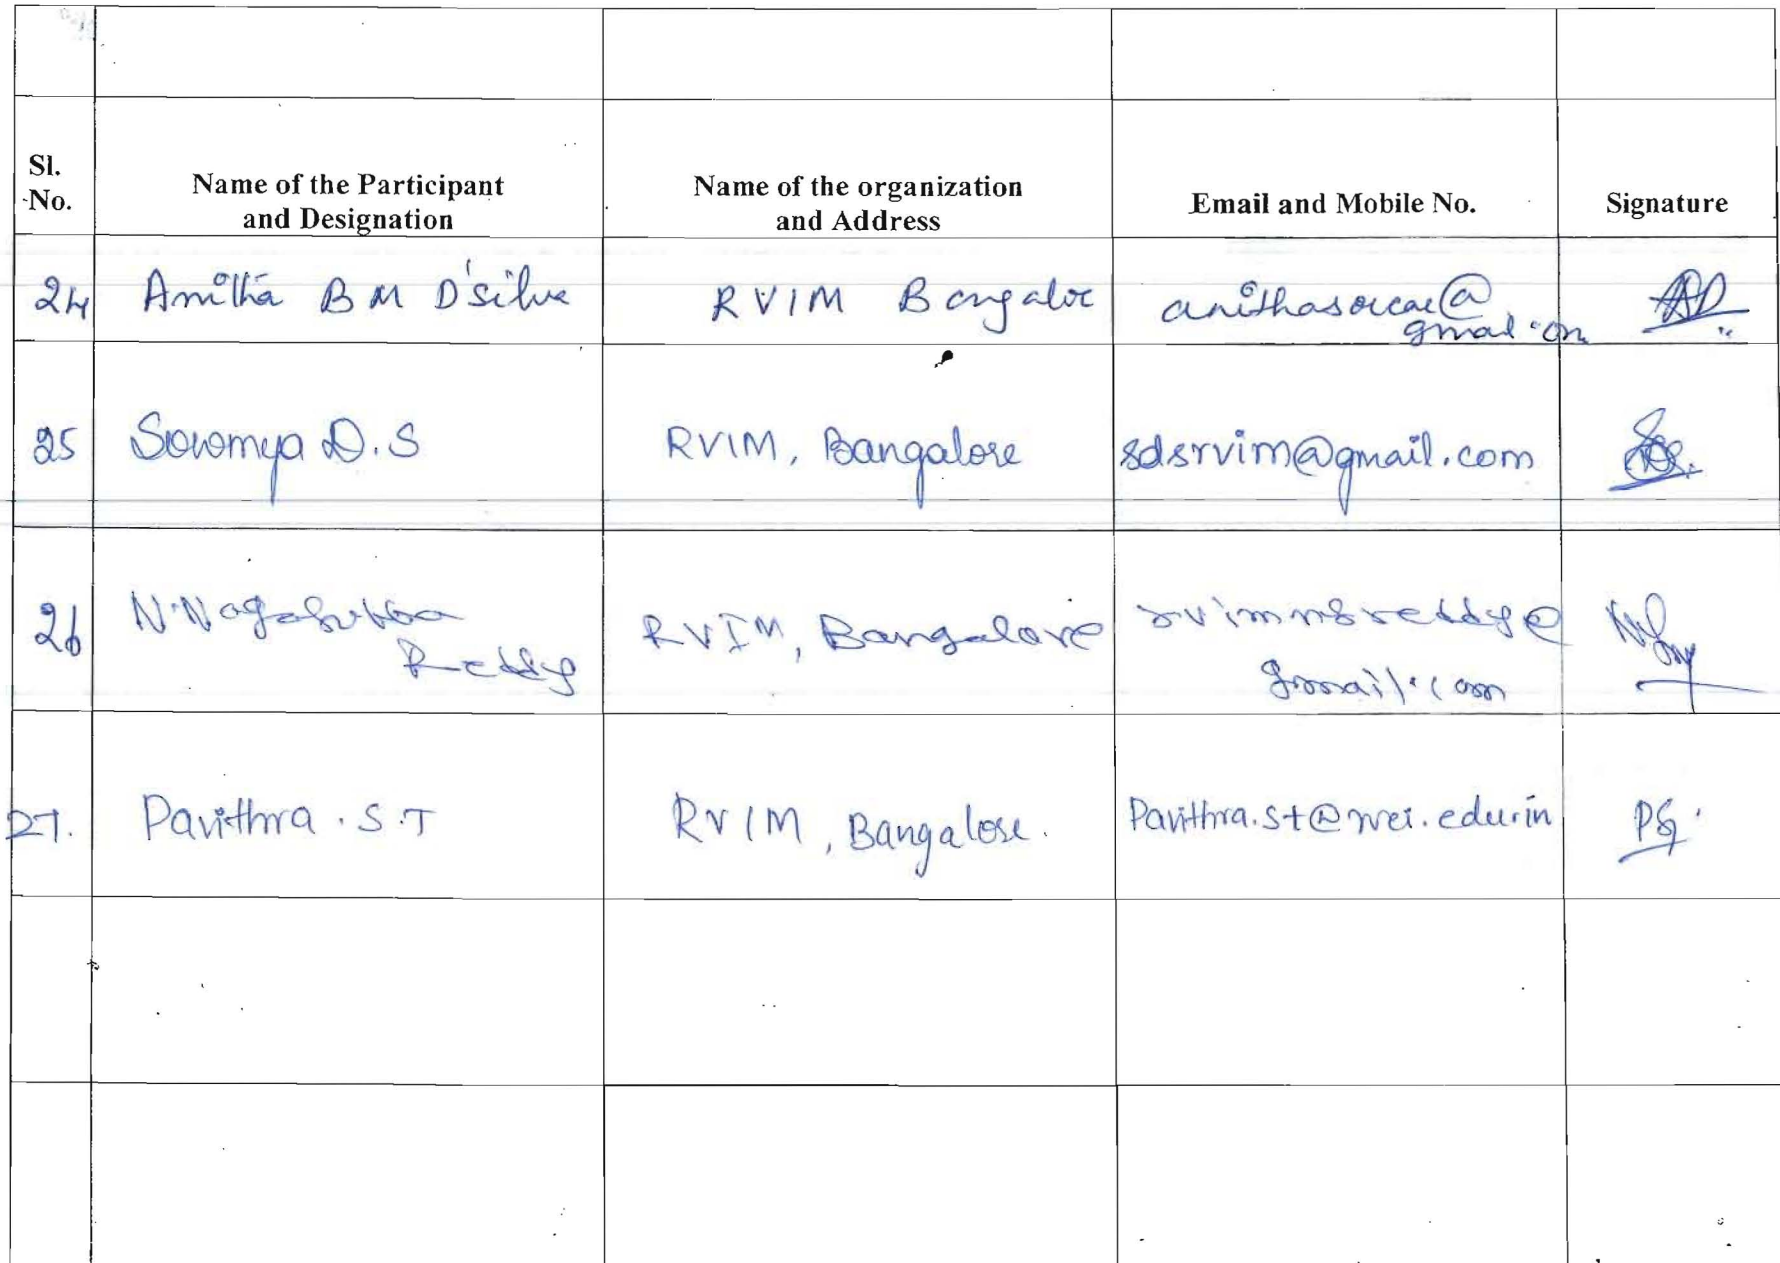 Sl.
No.
Name of the Participant
and Designation
Name of the organization
and Address
Email and Mobile No.
Signature
24 Anitha B M D'silva RVIM Bangalore
25 Sowmya D.S RVIM, Bangalore sdsrvim@gmail.com
26 N. Nagasubba
Reddy
RVIM, Bangalore rvimnsreddy@
gmail.com
27. Pavithra . S . T RVIM, Bangalore. Pavithra.st@rvei.edu.in